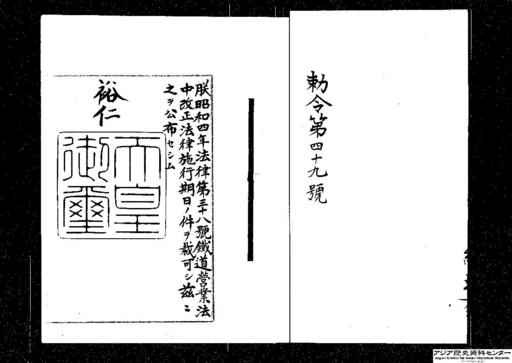 勅令第四十九號
朕昭和四年法律第三十八號鐵道營業法
中改正法律施行期日ノ件ヲ裁可シ茲ニ
之ヲ公布セシム
裕仁
天皇
御璽
アジア歴史資料センター
Japan Center for Asian Historical Records